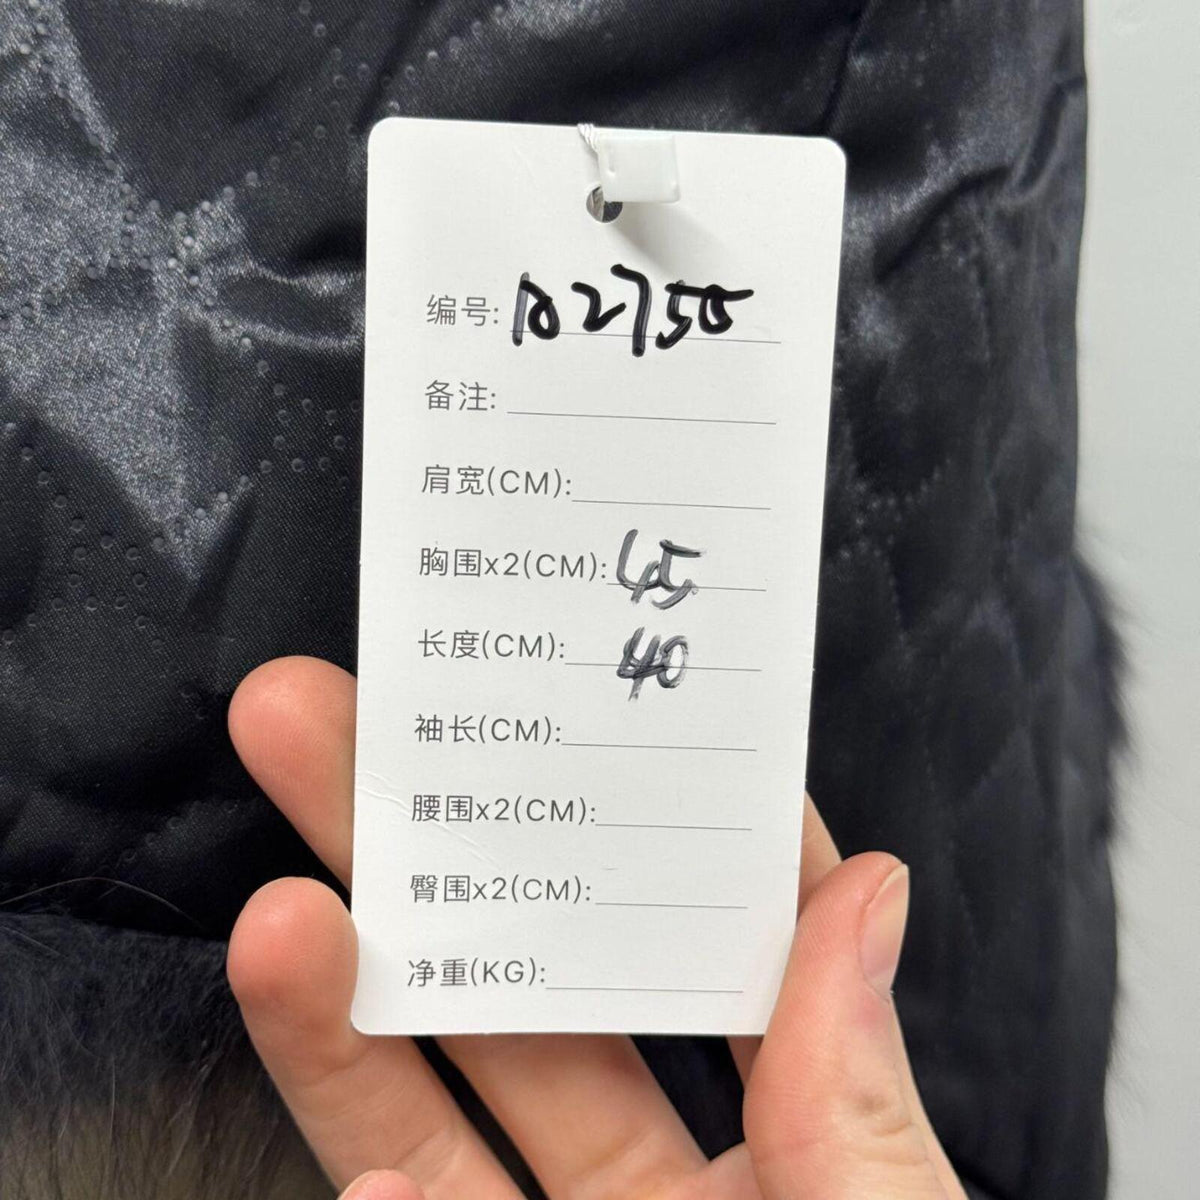 编号: 102755
备注:
肩宽(CM):
胸围x2(CM): 45
长度(CM): 40
袖长(CM):
腰围x2(CM):
臀围x2(CM):
净重(KG):